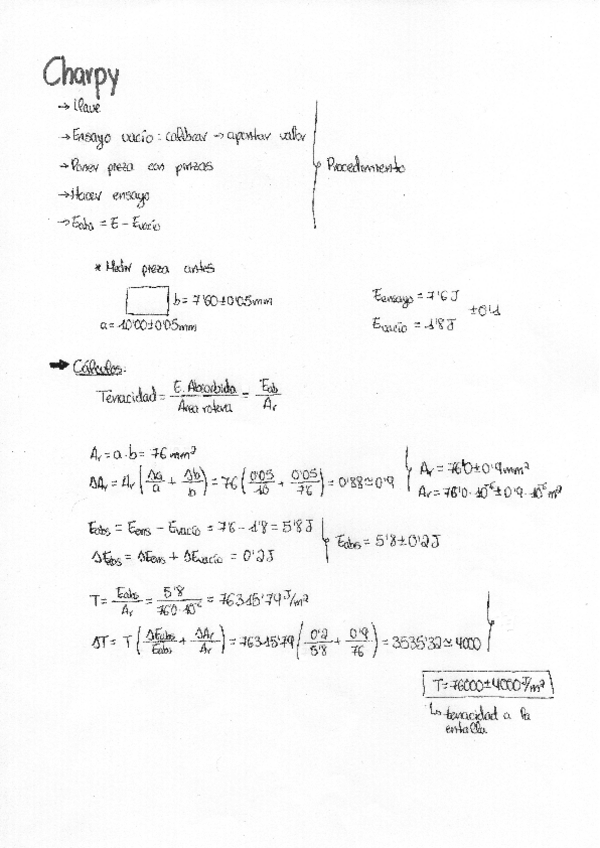 Charpy
→ Llave
→ Ensayo vacío: calibrar → apuntar valor
→ Poner pieza con pinzas
→ Hacer ensayo
→ Eabs = E - Evacío
Procedimiento
* Medir pieza antes
b = 7'60±0'05mm
a = 10'00±0'05mm
Eensayo = 7'6 J
Evacío = 1'8 J
±0'1
→ Cálculos.
Tenacidad = E. Absorbida / Área rotura = Eab / Ar
Ar = a·b = 76 mm²
ΔAr = Ar (Δa/a + Δb/b) = 76 (0'05/10 + 0'05/7'6) = 0'88 ≃ 0'9
Ar = 76'0 ± 0'9 mm²
Ar = 76'0·10⁻⁶ ± 0'9·10⁻⁶ m²
Eabs = Eens - Evacío = 7'6 - 1'8 = 5'8 J
ΔEabs = ΔEens + ΔEvacío = 0'2 J
Eabs = 5'8 ± 0'2 J
T = Eabs / Ar = 5'8 / 76'0·10⁻⁶ = 76315'79 J/m²
ΔT = T (ΔEabs/Eabs + ΔAr/Ar) = 76315'79 (0'2/5'8 + 0'9/76) = 3535'32 ≃ 4000
T = 76000 ± 4000 J/m²
↳ tenacidad a la
entalla